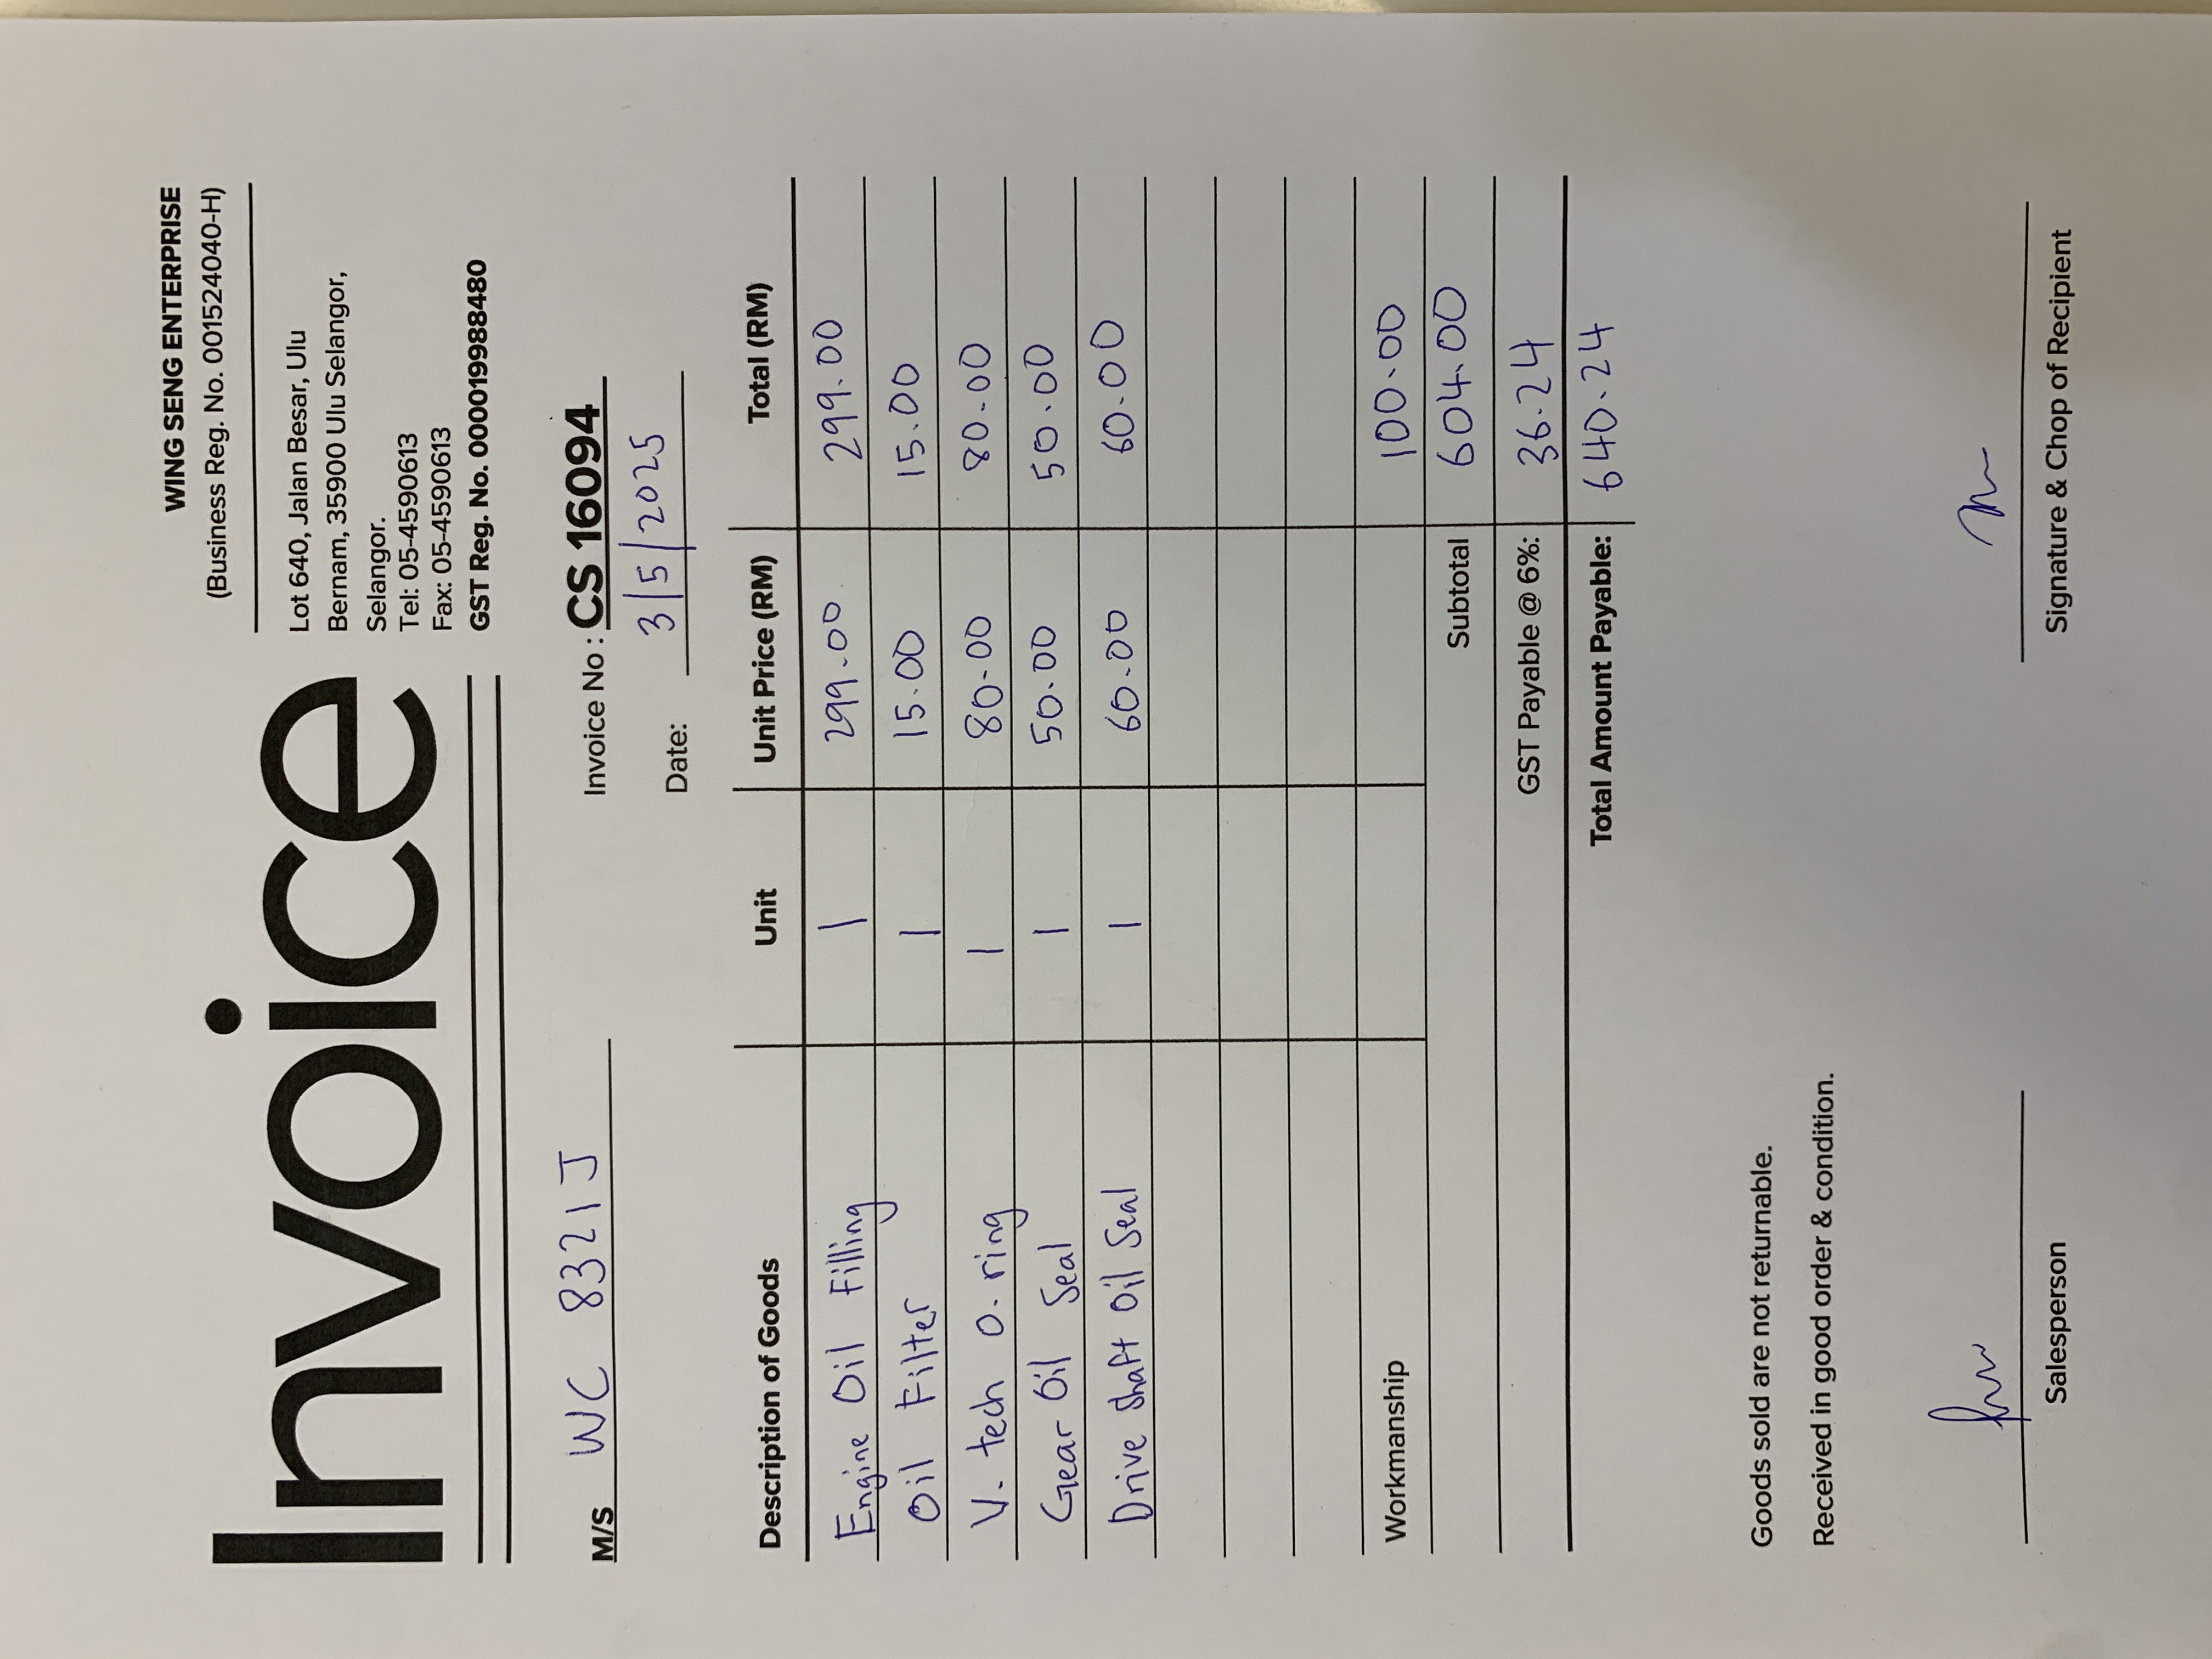 WING SENG ENTERPRISE
(Business Reg. No. 001524040-H)
Invoice
Lot 640, Jalan Besar, Ulu
Bernam, 35900 Ulu Selangor,
Selangor.
Tel: 05-4590613
Fax: 05-4590613
GST Reg. No. 000019988480
M/S WC 8321J
Invoice No : CS 16094
Date: 3/5/2025
Description of Goods Unit Unit Price (RM) Total (RM)
Engine Oil Filling 1 299.00 299.00
Oil Filter 1 15.00 15.00
V. tech O. ring 1 80.00 80.00
Gear Oil Seal 1 50.00 50.00
Drive Shaft Oil Seal 1 60.00 60.00
Workmanship 100.00
Subtotal 604.00
GST Payable @ 6%: 36.24
Total Amount Payable: 640.24
Goods sold are not returnable.
Received in good order & condition.
Salesperson
Signature & Chop of Recipient